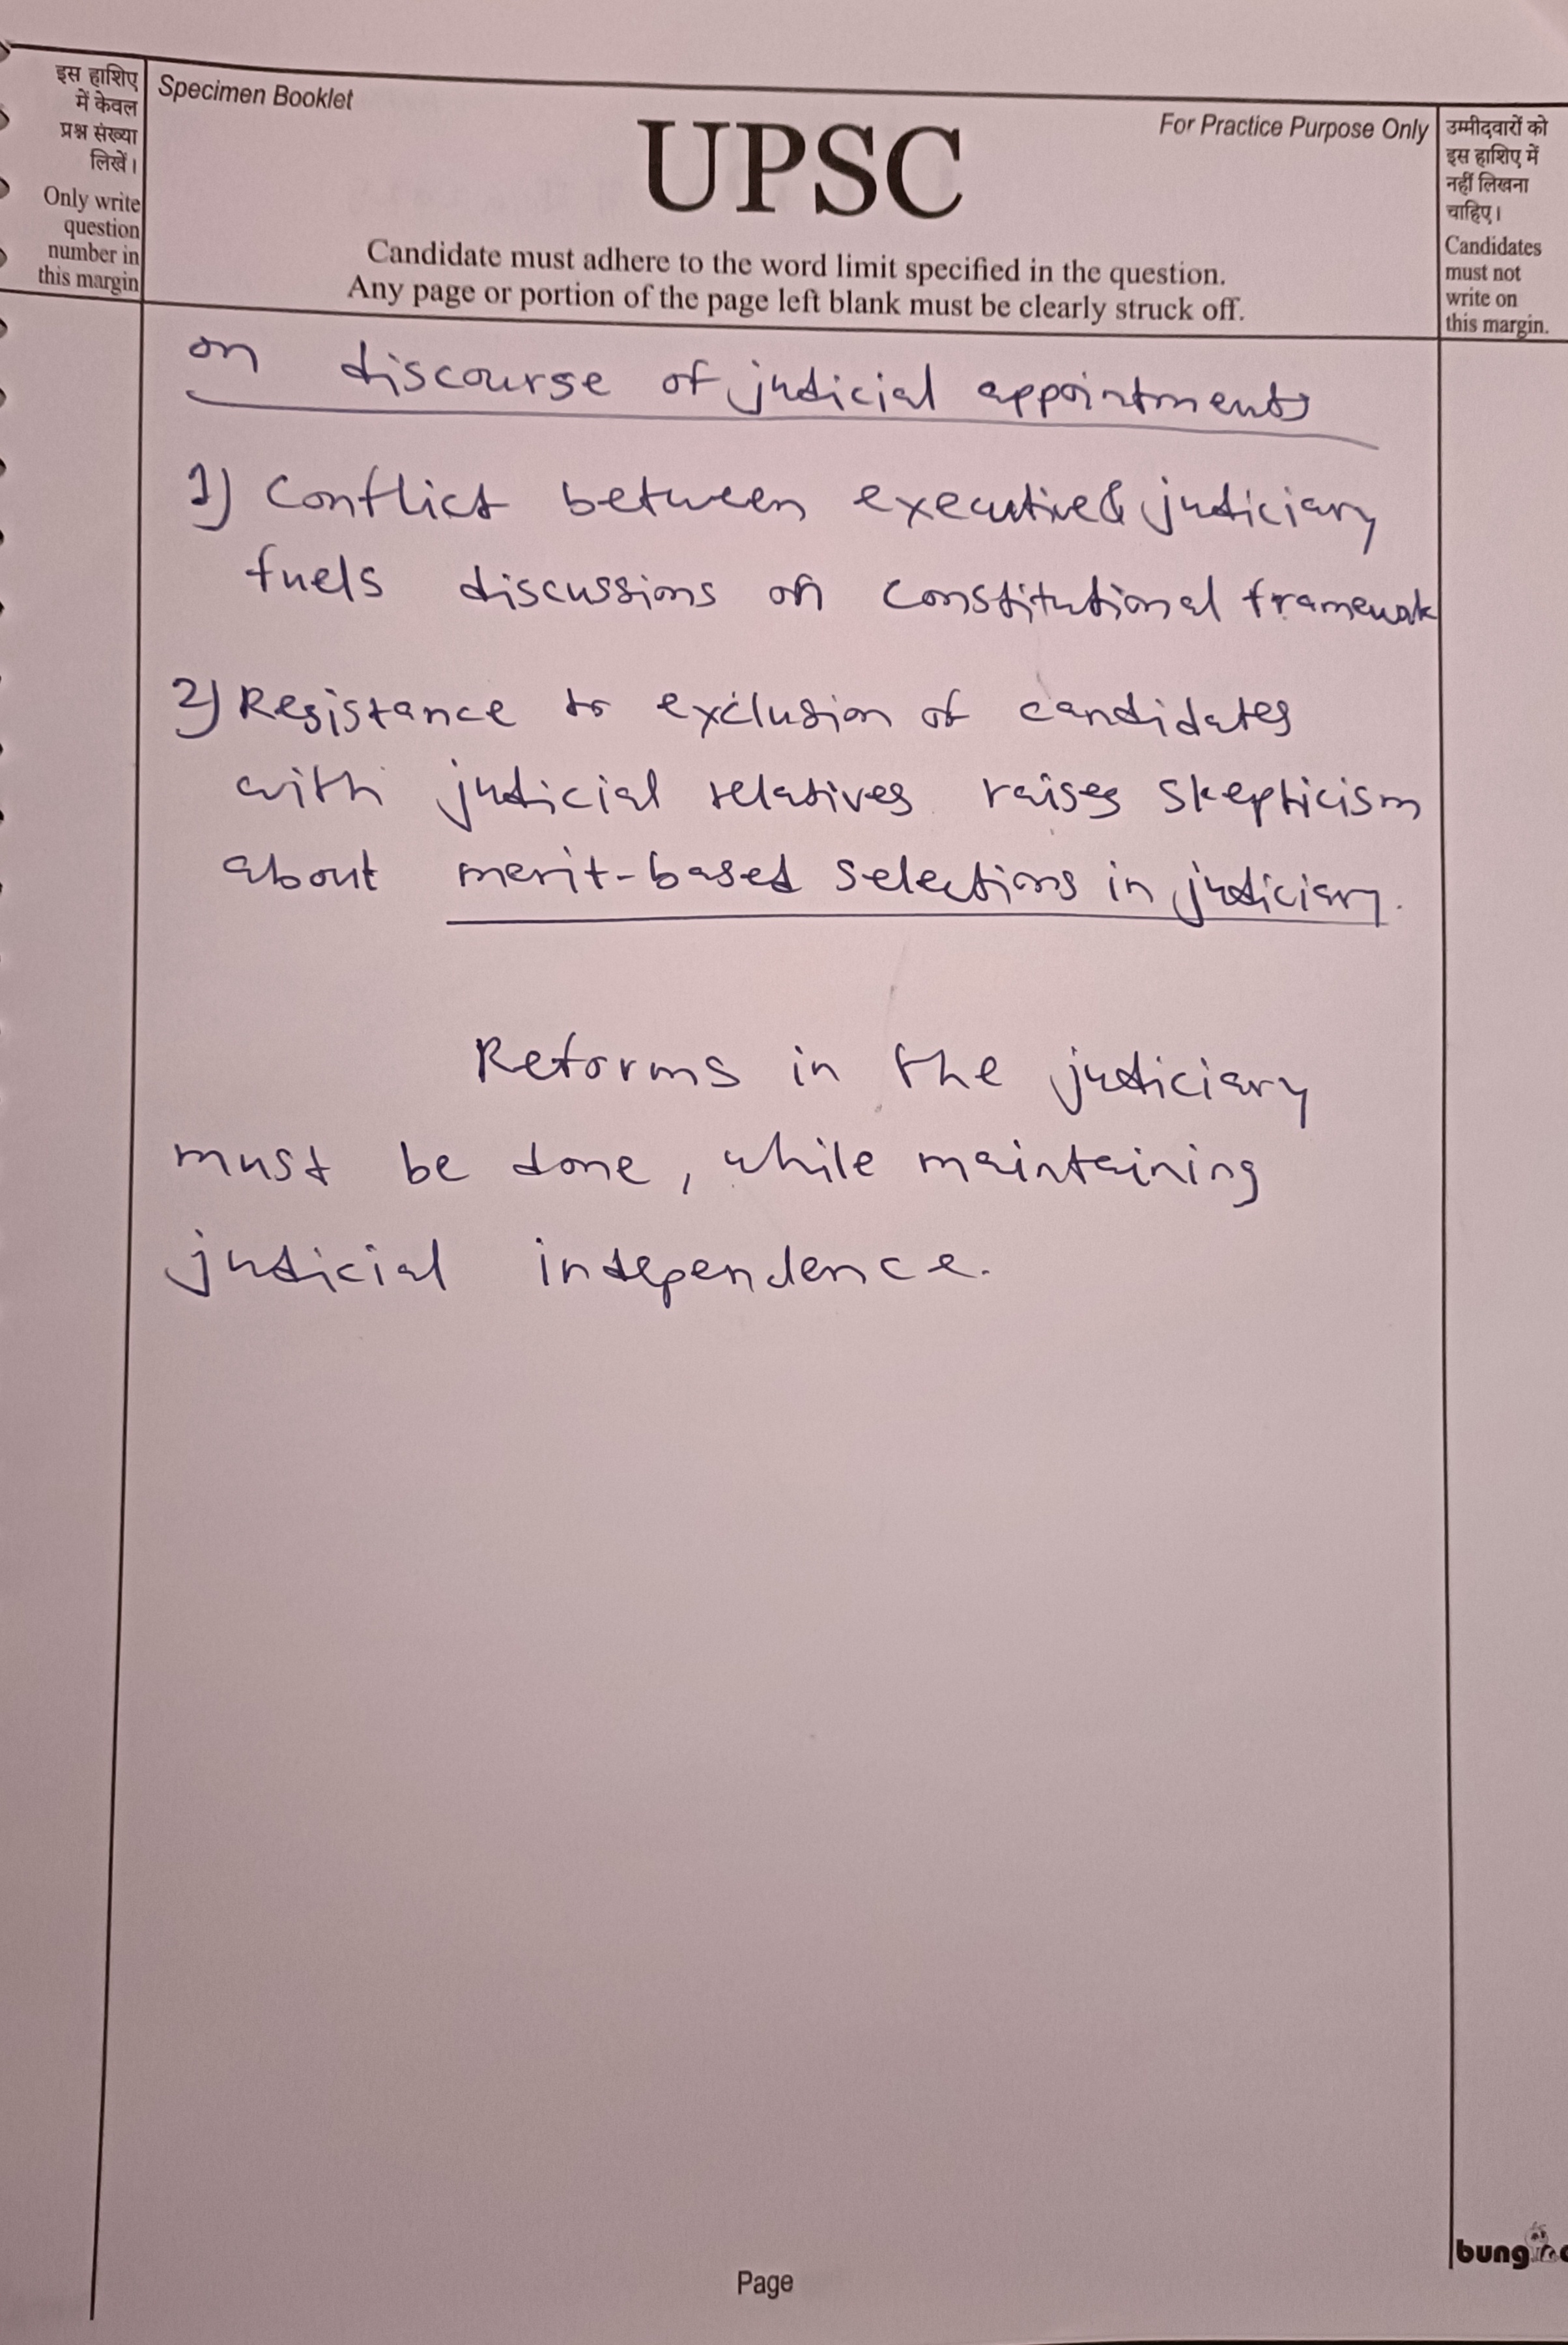 इस हाशिए
में केवल
प्रश्न संख्या
लिखें।
Only write
question
number in
this margin
Specimen Booklet
For Practice Purpose Only
UPSC
Candidate must adhere to the word limit specified in the question.
Any page or portion of the page left blank must be clearly struck off.
उम्मीदवारों को
इस हाशिए में
नहीं लिखना
चाहिए।
Candidates
must not
write on
this margin.
on discourse of judicial appointments
1) Conflict between executive & judiciary
fuels discussions on constitutional framework
2) Resistance to exclusion of candidates
with judicial relatives raises skepticism
about merit-based selections in judiciary.
Reforms in the judiciary
must be done, while maintaining
judicial independence.
Page